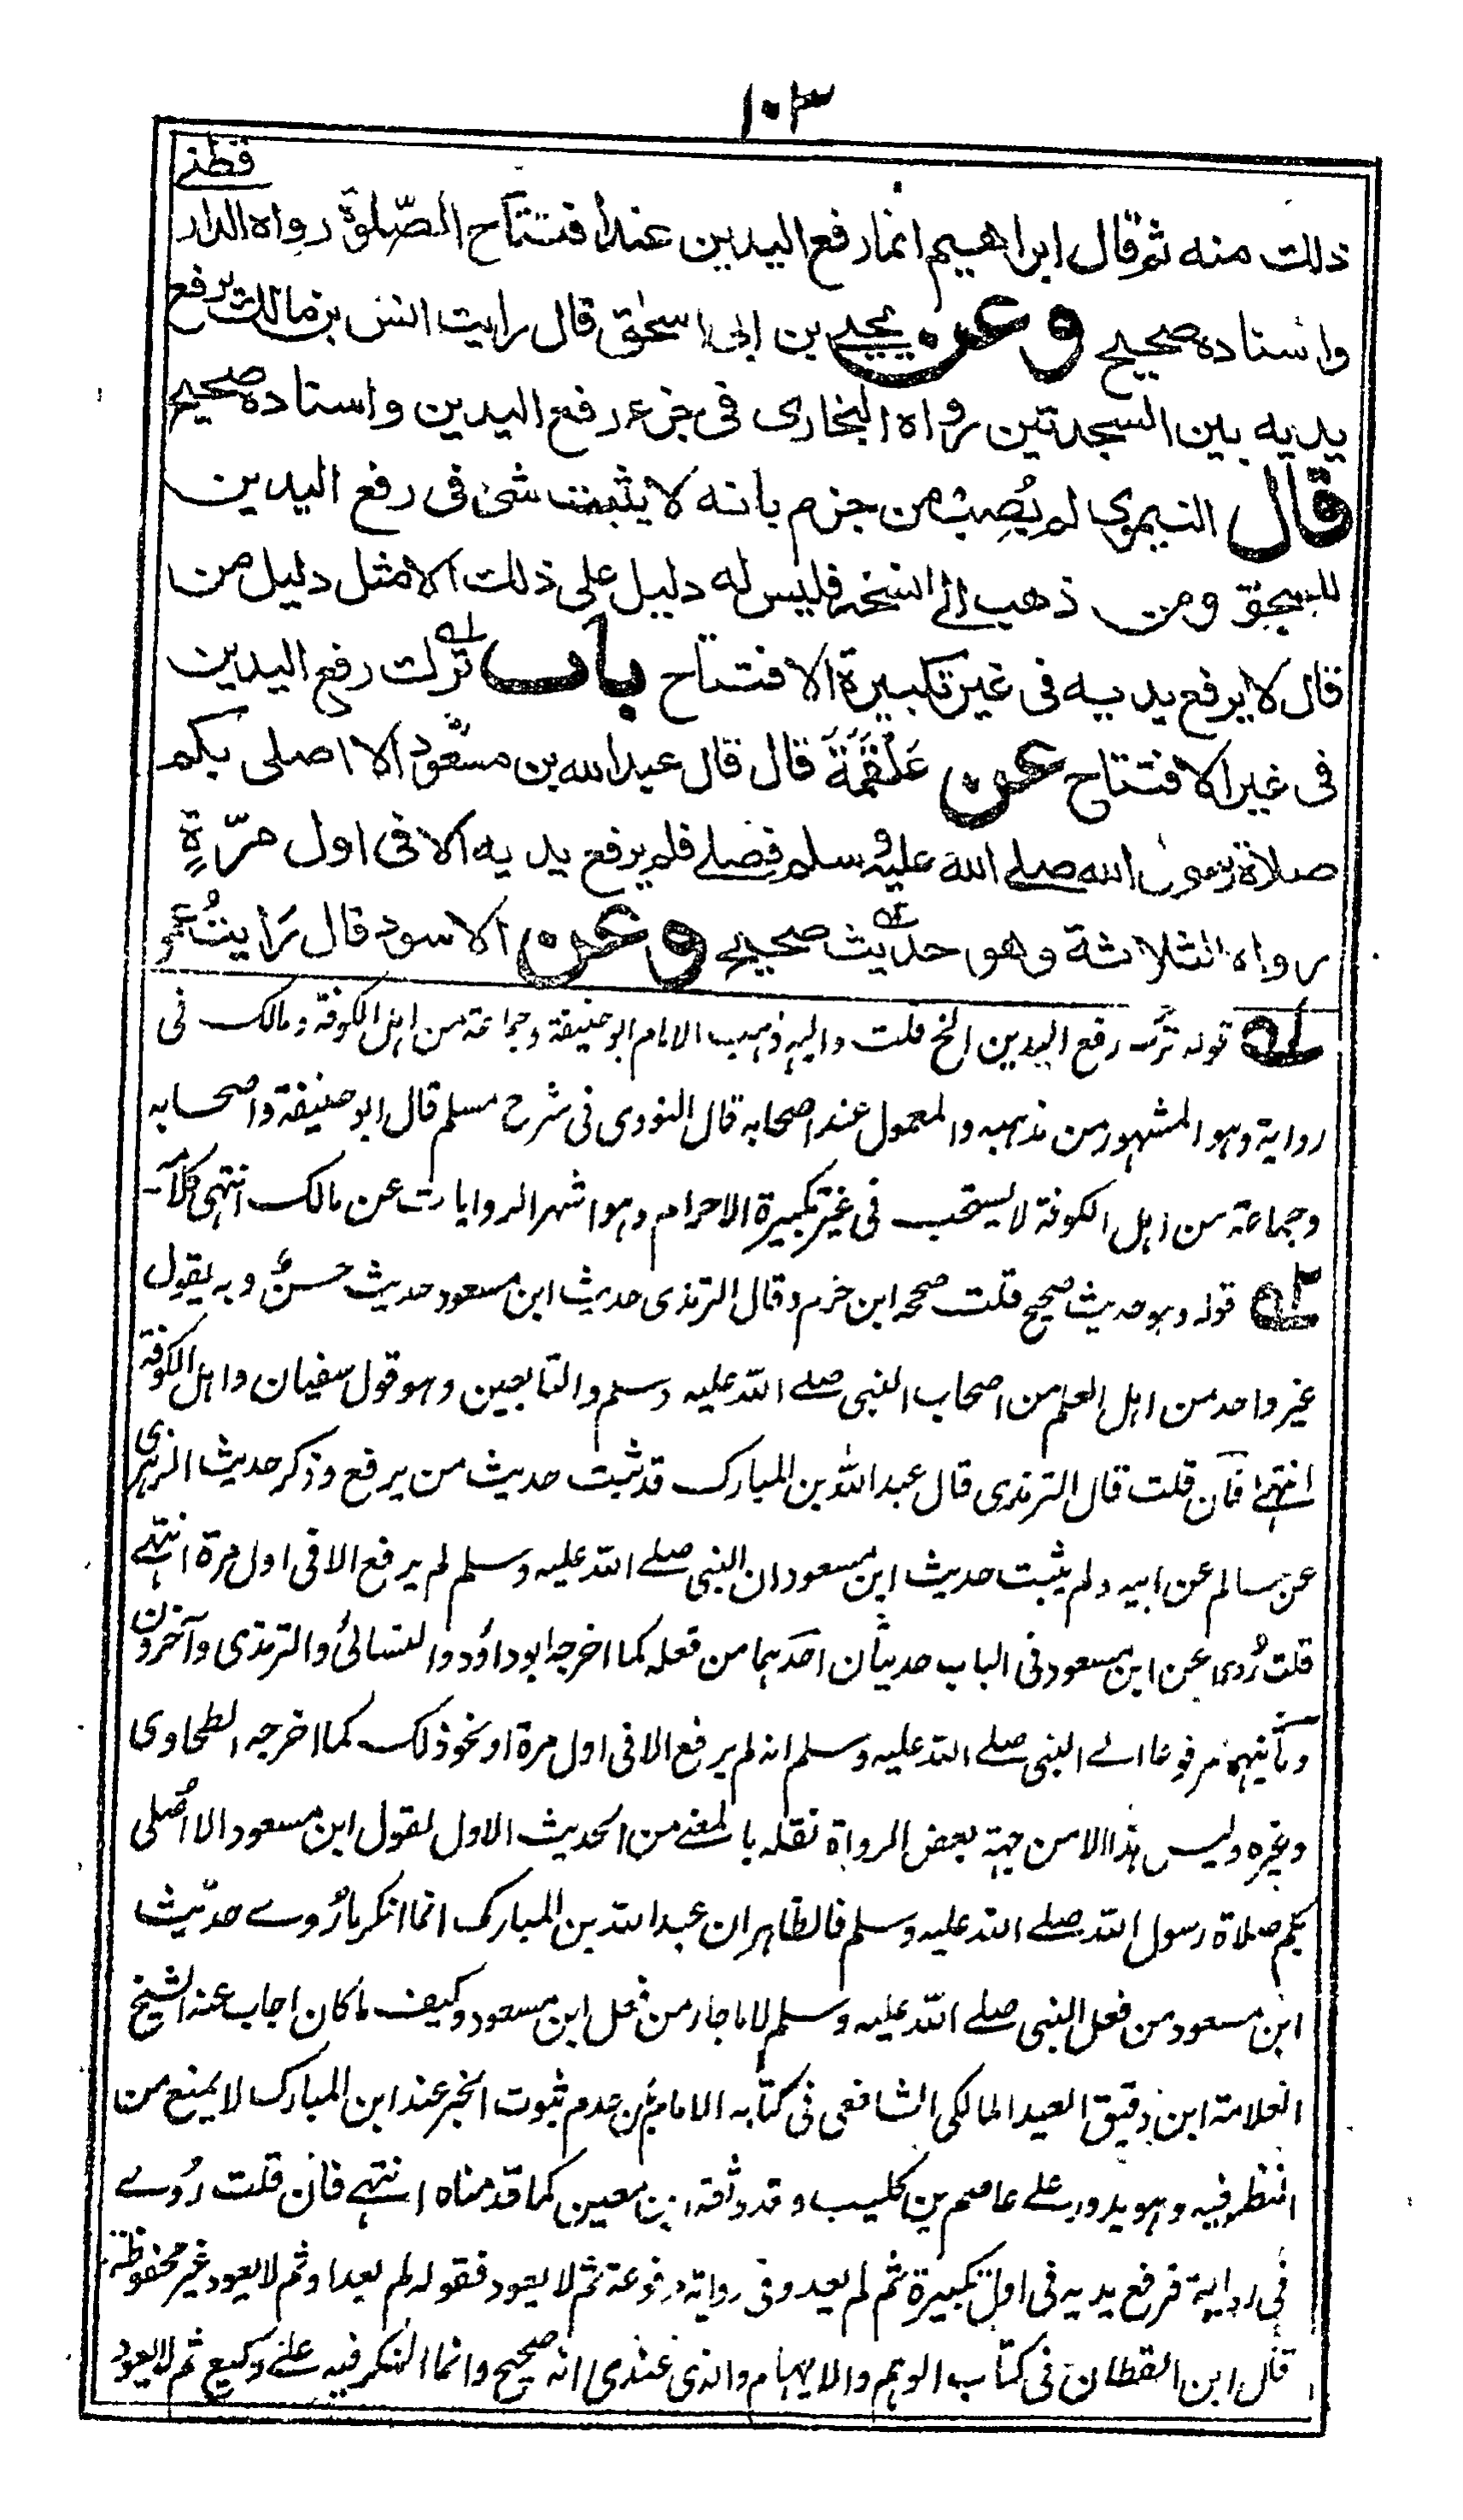 ١٠٣
ذلك منه ثم قال ابراهيم انما رفع اليدين عند افتتاح الصّلوة رواه الدارقطني
واسناده صحيح وعن يحيى بن ابى اسحٰق قال رايت انس بن مالك يرفع
يديه بين السجدتين رواه البخارى فى جزء رفع اليدين واسناده صحيح
قال النيموى لم يُصِبْ من جزم بانه لا يثبت شئ فى رفع اليدين
للسجود ومن ذهب الى النسخ فليس له دليل على ذلك الا مثل دليل من
قال لا يرفع يديه فى غير تكبيرة الافتتاح باب ترك رفع اليدين
فى غير الافتتاح عن عَلْقَمَةَ قال قال عبد الله بن مسعود الا اصلى بكم
صلاة رسول الله صلے الله عليه وسلم فصلے فلم يرفع يديه الا فى اول مرّةٍ
رواه الثلاثة وهو حديث صحيح وعن الاسود قال رَايتُ عمر
له قوله ترك رفع اليدين الخ قلت واليه ذهب الامام ابو حنيفة وجماعة من اهل الكوفة ومالك فى
رواية وهو المشهور من مذهبه والمعمول عند اصحابه قال النووى فى شرح مسلم قال ابو حنيفة واصحابه
وجماعة من اهل الكوفة لا يستحب فى غير تكبيرة الاحرام وهو اشهر الروايات عن مالك انتهى كلامه
٢ه قوله وهو حديث صحيح قلت صححه ابن حزم وقال الترمذى حديث ابن مسعود حديث حسنٌ وبه يقول
غير واحد من اهل العلم من اصحاب النبى صلے الله عليه وسلم والتابعين وهو قول سفيان واهل الكوفة
انتهے فان قلت قال الترمذى قال عبد الله بن المبارك قد ثبت حديث من يرفع وذكر حديث الزهرى
عن سالم عن ابيه ولم يثبت حديث ابن مسعود ان النبى صلے الله عليه وسلم لم يرفع الا فى اول مرة انتهے
قلت رُوى عن ابن مسعود فى الباب حديثان احدهما من فعله كما اخرجه ابو داؤد والنسائى والترمذى وآخرون
وثانيهما مرفوعا الے النبى صلے الله عليه وسلم انه لم يرفع الا فى اول مرة او نحو ذلك كما اخرجه الطحاوى
وغيره وليس هذا الا من جهة بعض الرواة نقله بالمعنے من الحديث الاول لقول ابن مسعود الا اُصلى
بكم صلاة رسول الله صلے الله عليه وسلم فالظاهر ان عبد الله بن المبارك انما انكر ما رُوے حديث
ابن مسعود من فعل النبى صلے الله عليه وسلم لا ما جاء من فعل ابن مسعود وكيف ما كان اجاب عنه الشيخ
العلامة ابن دقيق العيد المالكى الشافعى فى كتابه الامام بان عدم ثبوت الخبر عند ابن المبارك لا يمنع من
النظر فيه وهو يدور علے عاصم بن كليب وقد وثقه ابن معين كما قدمناه انتهے فان قلت رُوے
فى رواية فرفع يديه فى اول تكبيرة ثم لم يعد وفى رواية مرفوعة ثم لا يعود فقوله لم يعد او ثم لا يعود غير محفوظة
قال ابن القطان فى كتاب الوهم والايهام والذى عندى انه صحيح وانما المنكر فيه علے وكيع ثم لا يعود